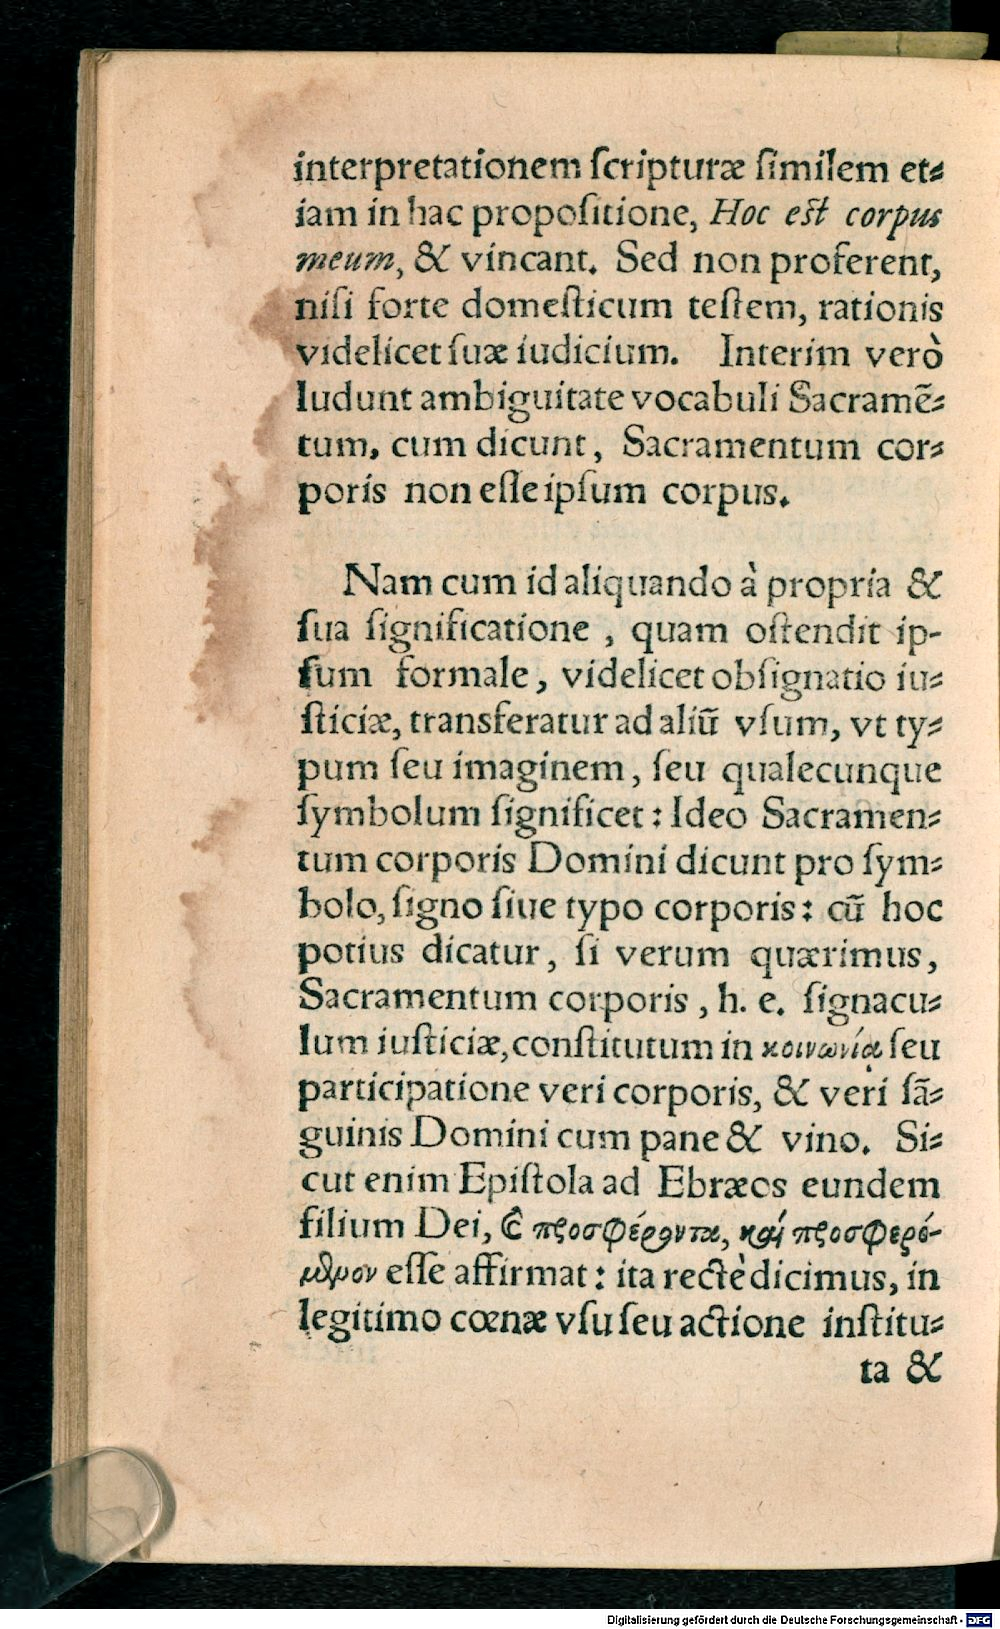 interpretationem ſcripturæ ſimilem et⸗
iam in hac propoſitione, Hoc eſt corpus
meum, & vincant. Sed non proferent,
niſi forte domeſticum teſtem, rationis
videlicet ſuæ iudicium. Interim verò
ludunt ambiguitate vocabuli Sacramē⸗
tum, cum dicunt, Sacramentum cor⸗
poris non eſſe ipſum corpus.
Nam cum id aliquando à propria &
ſua ſignificatione, quam oſtendit ip-
ſum formale, videlicet obſignatio iu⸗
ſticiæ, transferatur ad aliū vſum, vt ty⸗
pum ſeu imaginem, ſeu qualecunque
ſymbolum ſignificet: Ideo Sacramen⸗
tum corporis Domini dicunt pro ſym⸗
bolo, ſigno ſiue typo corporis: cū hoc
potius dicatur, ſi verum quærimus,
Sacramentum corporis, h. e. ſignacu⸗
lum iuſticiæ, conſtitutum in κοινωνίᾳ ſeu
participatione veri corporis, & veri ſā⸗
guinis Domini cum pane & vino. Si⸗
cut enim Epiſtola ad Ebræos eundem
filium Dei, & προσφέροντα, καὶ προσφερό-
μενον eſſe affirmat: ita rectè dicimus, in
legitimo cœnæ vſu ſeu actione inſtitu⸗
ta &
Digitalisierung gefördert durch die Deutsche Forschungsgemeinschaft - DFG